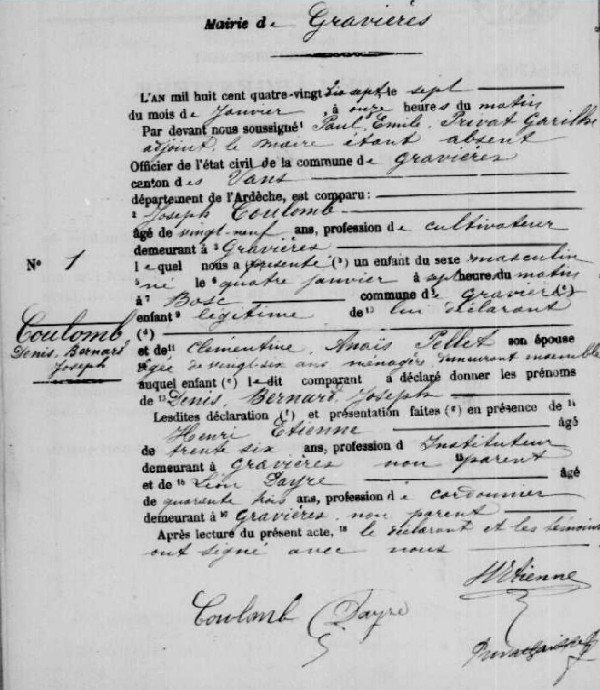 Mairie de Gravières
L'AN mil huit cent quatre-vingt dix sept, le sept
du mois de Janvier, à onze heures du matin
Par devant nous soussigné¹ Paul, Emile, Privat Garilhe
adjoint, le maire étant absent
Officier de l'état civil de la commune de Gravières
canton des Vans
département de l'Ardèche, est comparu :
² Joseph Coulomb
âgé de vingt-neuf ans, profession de cultivateur
demeurant à ³ Gravières
Nº 1
lequel nous a présenté (⁵) un enfant du sexe masculin
né le ⁶ quatre janvier à sept heures du matin
à ⁷ Bosc commune de Gravières (¹)
enfant ⁹ légitime de ¹⁰ lui déclarant
Coulomb,
Denis, Bernard,
Joseph
(⁴)
et de ¹¹ Clémentine, Anaïs Pellet son épouse
âgée de vingt-six ans, ménagère, demeurant ensemble
auquel enfant (⁶) le dit comparant a déclaré donner les prénoms
de ¹³ Denis, Bernard, Joseph
Lesdites déclaration (⁷) et présentation faites (⁸) en présence de ¹⁴
Henri Etienne âgé
de trente six ans, profession d Instituteur
demeurant à Gravières non parent
et de ¹⁶ Léon Dayre âgé
de quarante trois ans, profession de cordonnier
demeurant à Gravières, non parent
Après lecture du présent acte, ¹⁸ le déclarant et les témoins
ont signé avec nous
HEtienne
Coulomb Dayre